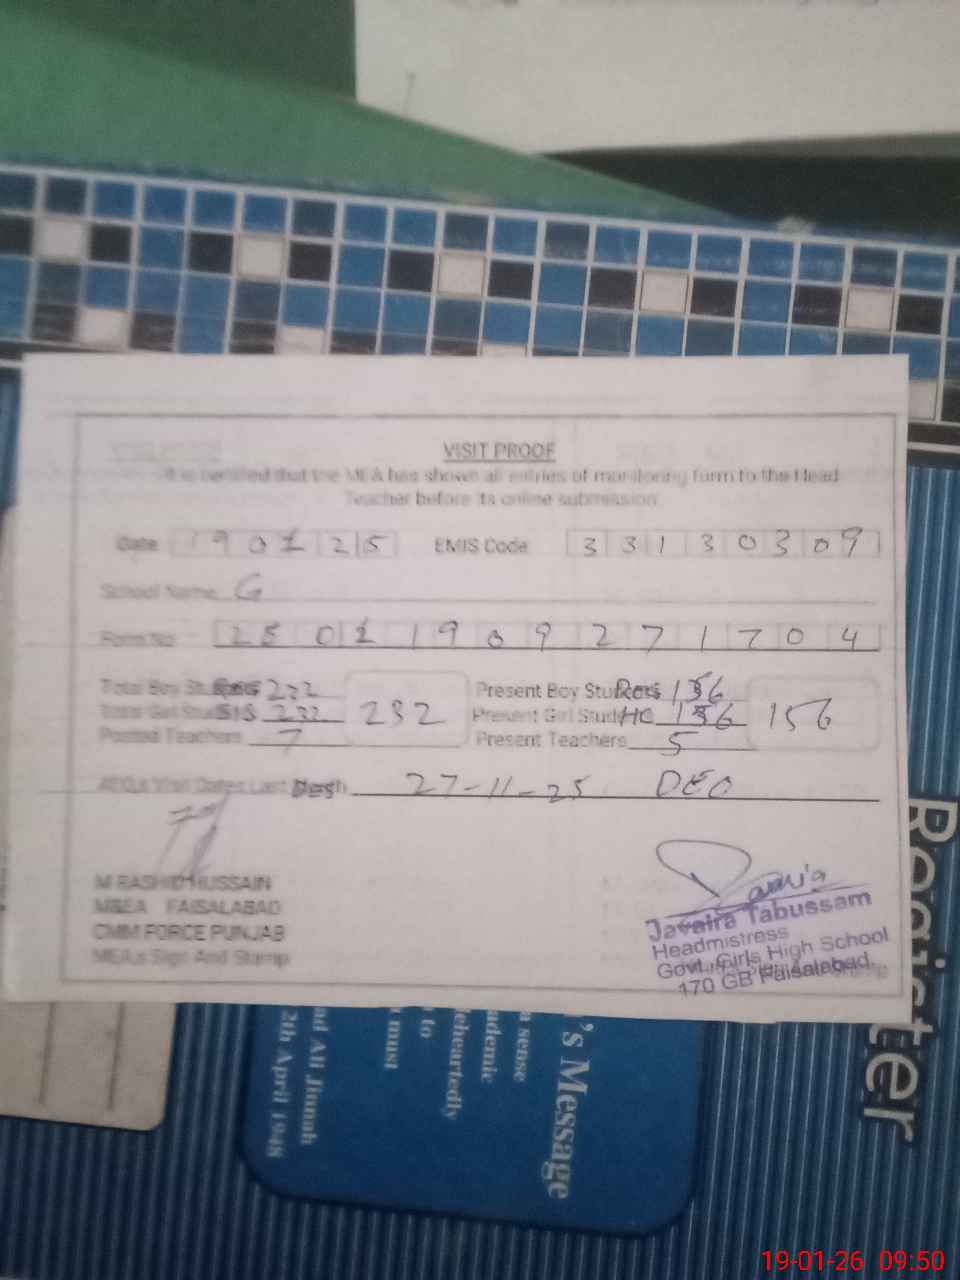 VISIT PROOF
It is certified that the MEA has shown all entries of monitoring form to the Head
Teacher before its online submission
Date 190125 EMIS Code 33130309
School Name G
Form No 25011909271704
Total Boy Students 232 Present Boy Students 156
Total Girl SIS 232 232 Present Girl Stud HC 156 156
Posted Teachers 7 Present Teachers 5
AEO,s Visit Dates Last 27-11-25 DEO
M RASHID HUSSAIN
M&EA FAISALABAD
CMM FORCE PUNJAB
MEA,s Sign And Stamp
Javaria
Javaira Tabussam
Headmistress
Govt. Girls High School
170 GB Faisalabad.
Register
's Message
a sense
ademic
leheartedly
n to
must
ad Ali Jinnah
2th April 1948
19-01-26 09:50